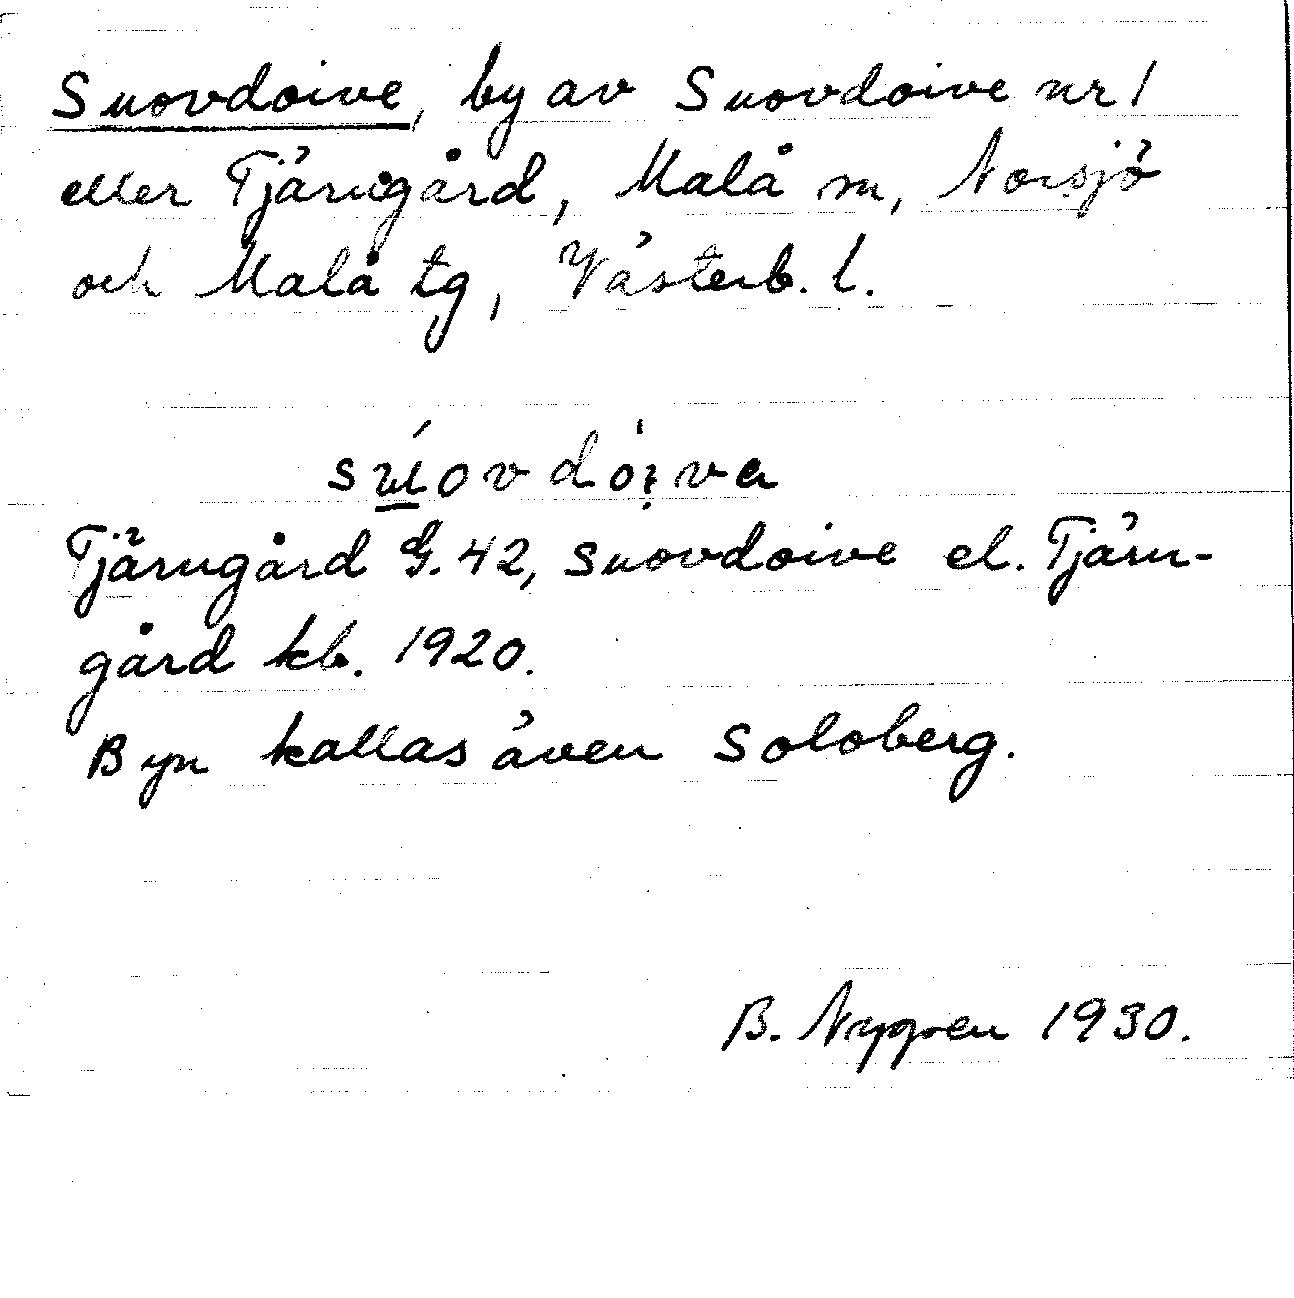 Suovdoive, by av Suovdoive nr 1
eller Tjärngård, Malå sn, Norsjö
och Malå tg, Västerb. l.
Tjärngård G. 42, Suovdoive el. Tjärn-
gård kb. 1920.
Byn kallas även Soloberg.
B. Nygren 1930.